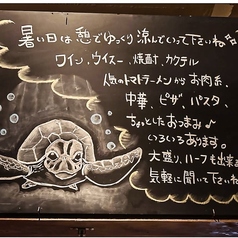 暑い日は憩でゆっくり涼んでいって下さいね
ワイン、ウイスキー、焼酎、カクテル
人気のトマトラーメンからお肉系、
中華、ピザ、パスタ、
ちょっとしたおつまみ♪
いろいろあります。
大盛り、ハーフも出来ます
気軽に聞いて下さいね